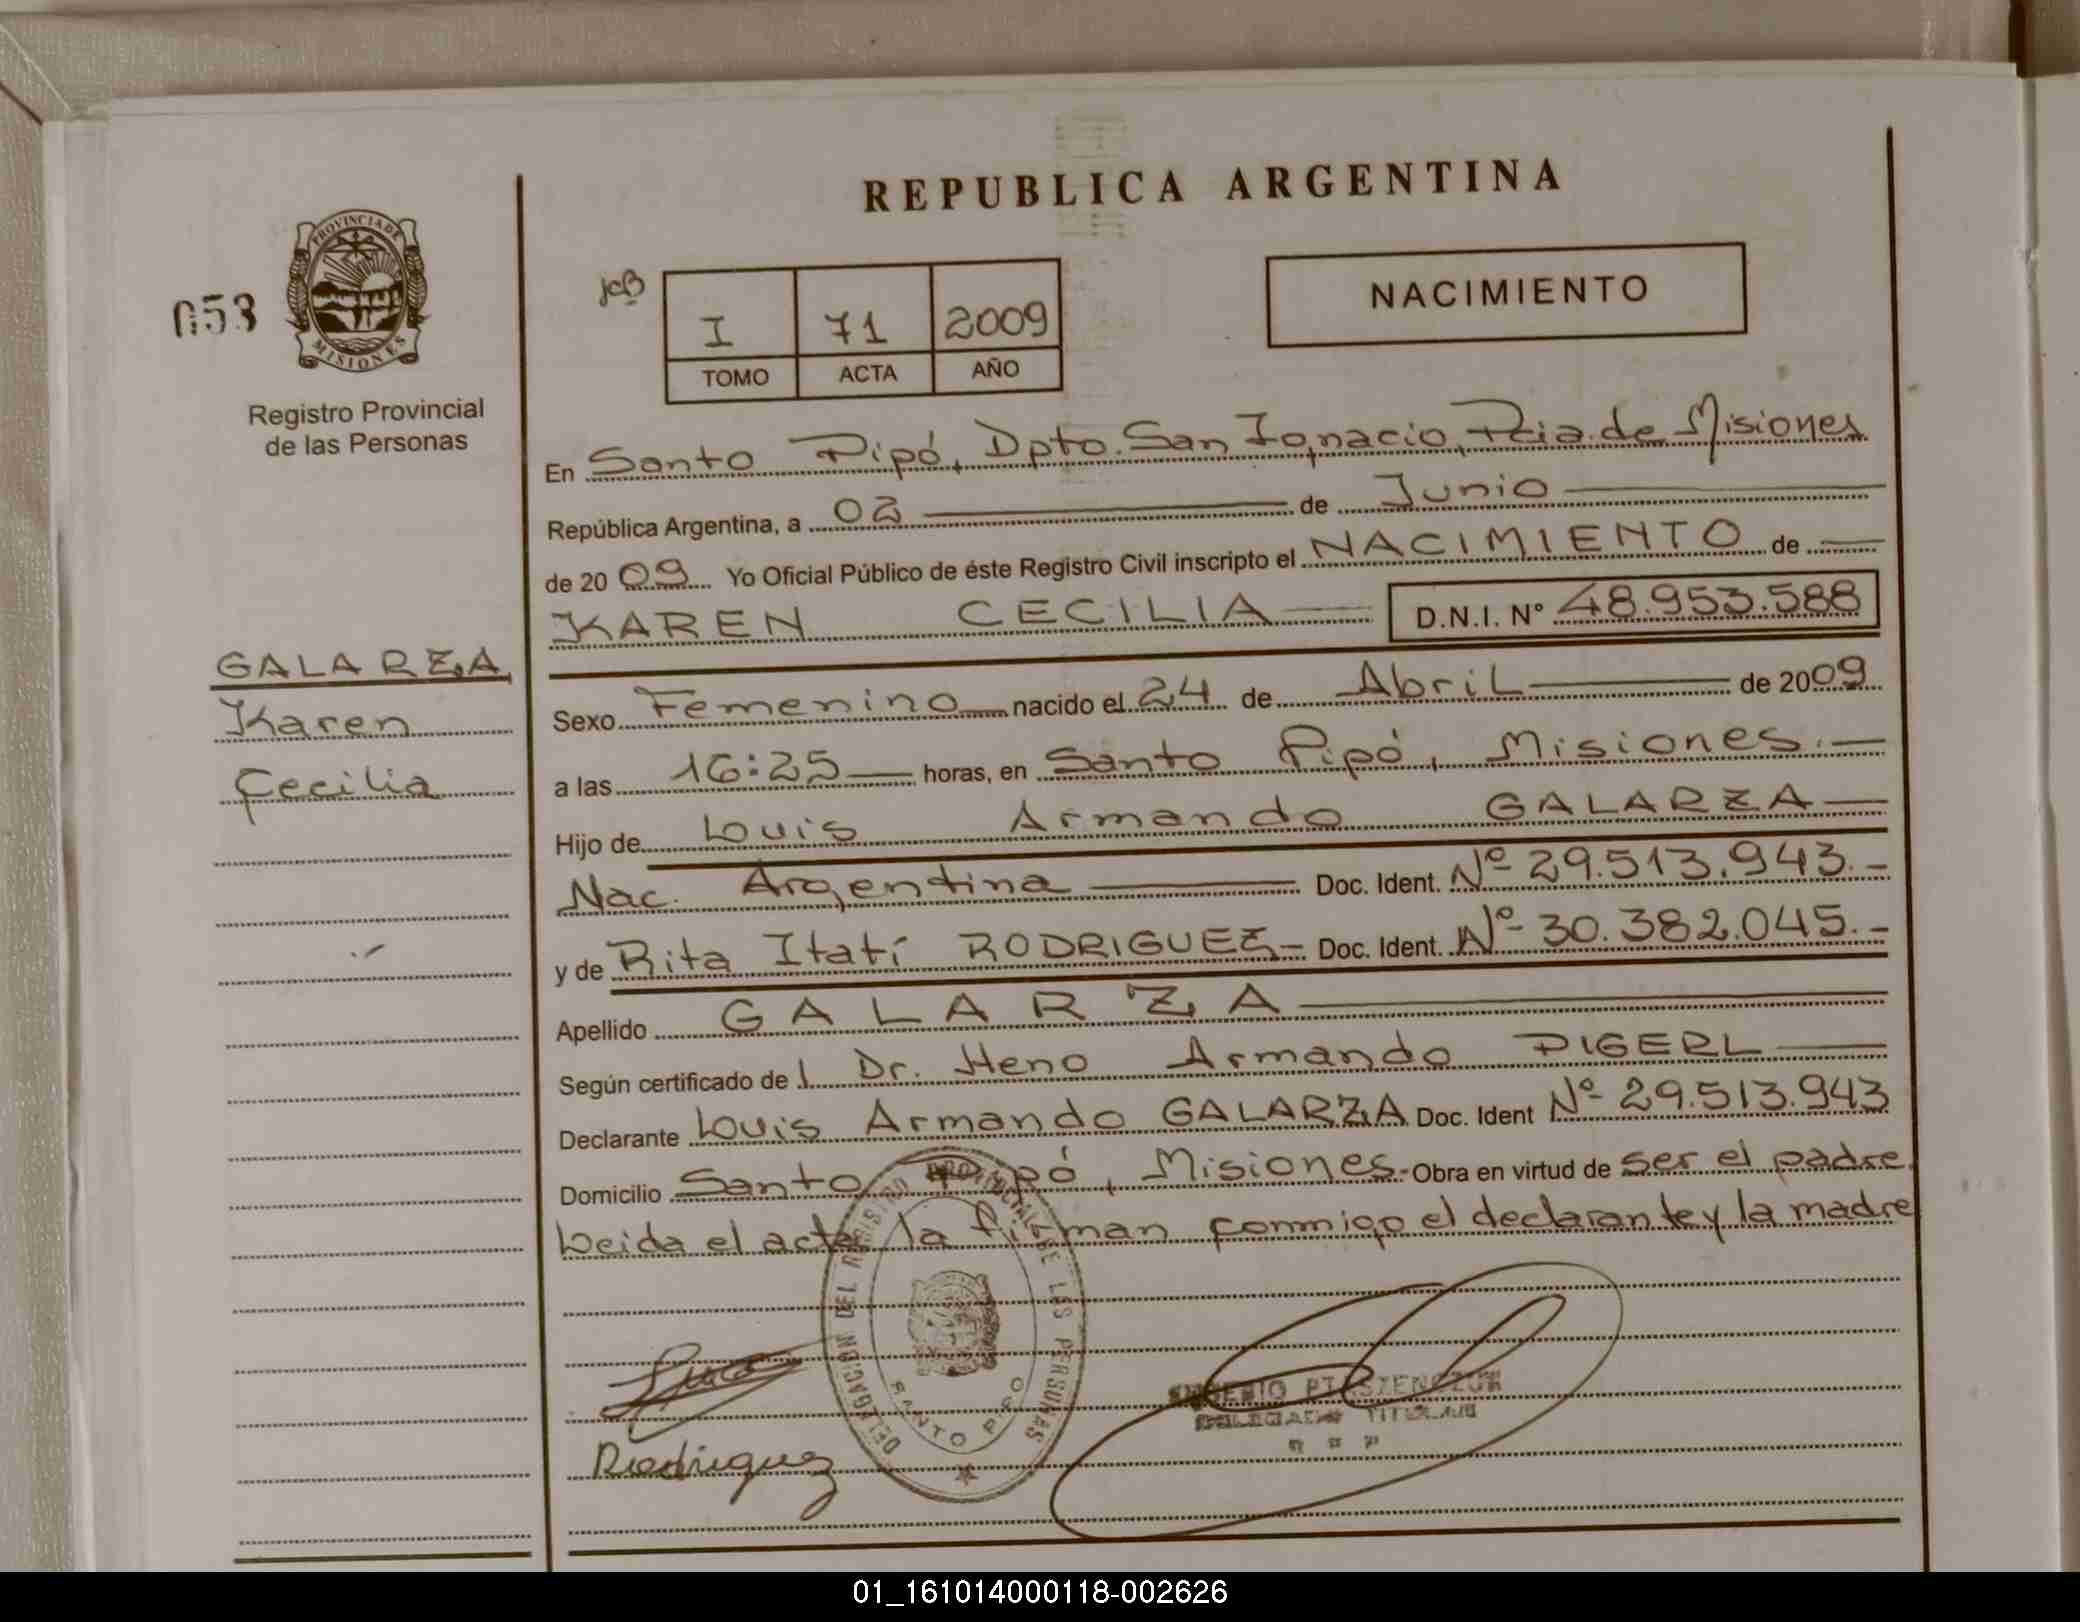 REPUBLICA ARGENTINA
PROVINCIA DE MISIONES
053
Registro Provincial
de las Personas
jcB
I 71 2009
TOMO ACTA AÑO
NACIMIENTO
En Santo Pipó, Dpto. San Ignacio, Pcia. de Misiones
República Argentina, a 02 de Junio
de 2009 Yo Oficial Público de éste Registro Civil inscripto el NACIMIENTO de
KAREN CECILIA D.N.I. Nº 48.953.588
GALARZA
Karen
Cecilia
Sexo Femenino nacido el 24 de Abril de 2009
a las 16:25 horas, en Santo Pipó, Misiones.
Hijo de Louis Armando GALARZA
Nac. Argentina Doc. Ident. Nº 29.513.943.-
y de Rita Itatí RODRIGUEZ- Doc. Ident. Nº 30.382.045.-
Apellido GALARZA
Según certificado de l Dr. Heno Armando PIGERL
Declarante Louis Armando GALARZA Doc. Ident Nº 29.513.943
Domicilio Santo Pipó, Misiones.- Obra en virtud de ser el padre.
Leida el acta, la firman conmigo el declarante y la madre
DELEGACION DEL REGISTRO PROVINCIAL DE LAS PERSONAS
SANTO PIPO
DELEGADO TITULAR
Rodriguez
01_161014000118-002626